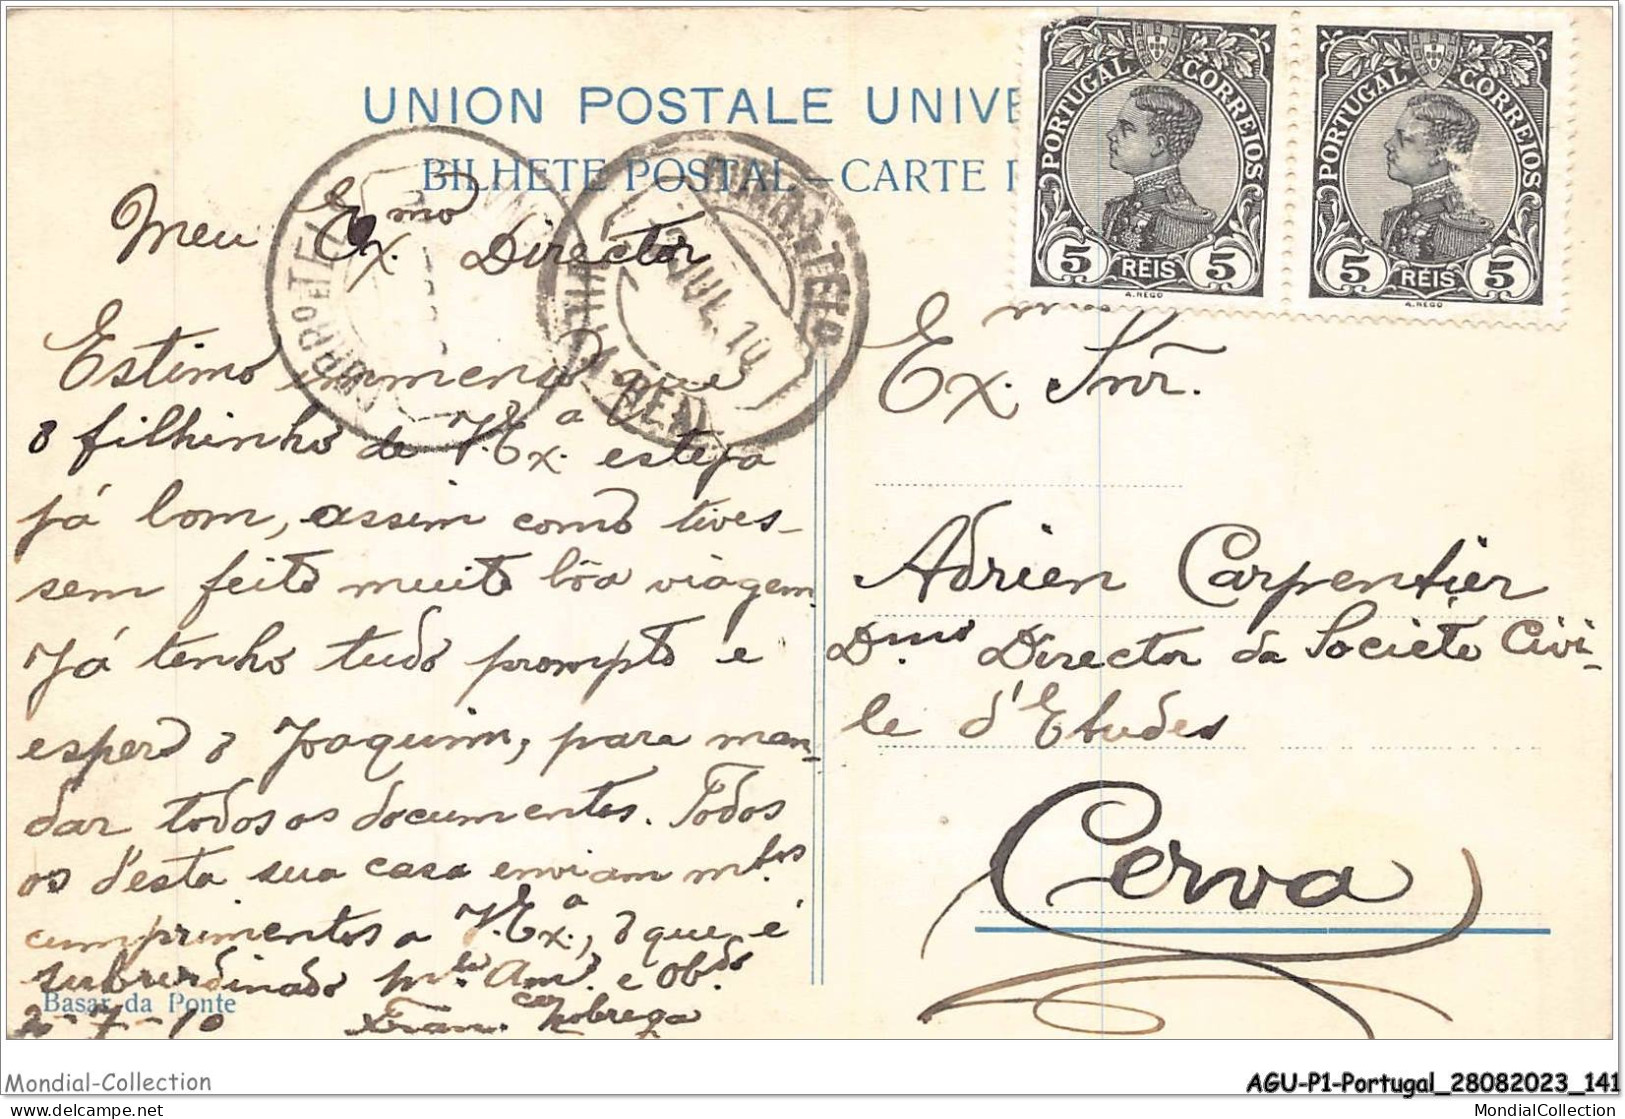 UNION POSTALE UNIVE
BILHETE POSTAL — CARTE
PORTUGAL CORREIOS
5 REIS 5
A. REGO
PORTUGAL CORREIOS
5 REIS 5
A. REGO
CORRO E TEL
CORREIO E TELEG
VILLA REAL
JUL. 10
Meu Ex.mo Director
Estimo immenso que
o filhinho de V. Ex.a esteja
já bom, assim como tives-
sem feito muito bôa viagem.
Já tenho tudo prompto e
espero o Joaquim, para man-
dar todos os documentos. Todos
os d'esta sua casa enviam m.tos
cumprimentos a V. Ex.a, o que é
subordinado m.to Am.o e Ob.do
Fran.co Nobrega
-7-10
Basar da Ponte
Ex.mo Snr.
Adrien Carpentier
D.mo Director da Societé Civi-
le d'Etudes
Cerva
Mondial-Collection
AGU-P1-Portugal_28082023_141
delcampe.net
MondialCollection